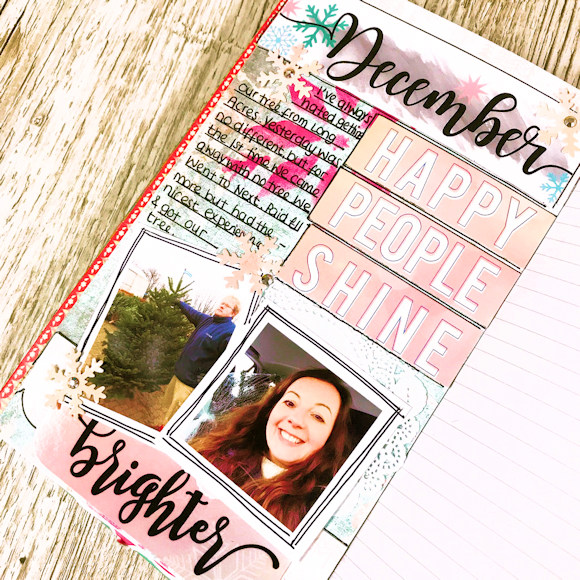 December
I've always
hated getting
Our tree from Long
Acres. Yesterday was
no different but for
the 1st time we came
away with no tree. We
Went to Next. Paid
more but had the -
nicest experience
& got our
tree
HAPPY
PEOPLE
SHINE
brighter